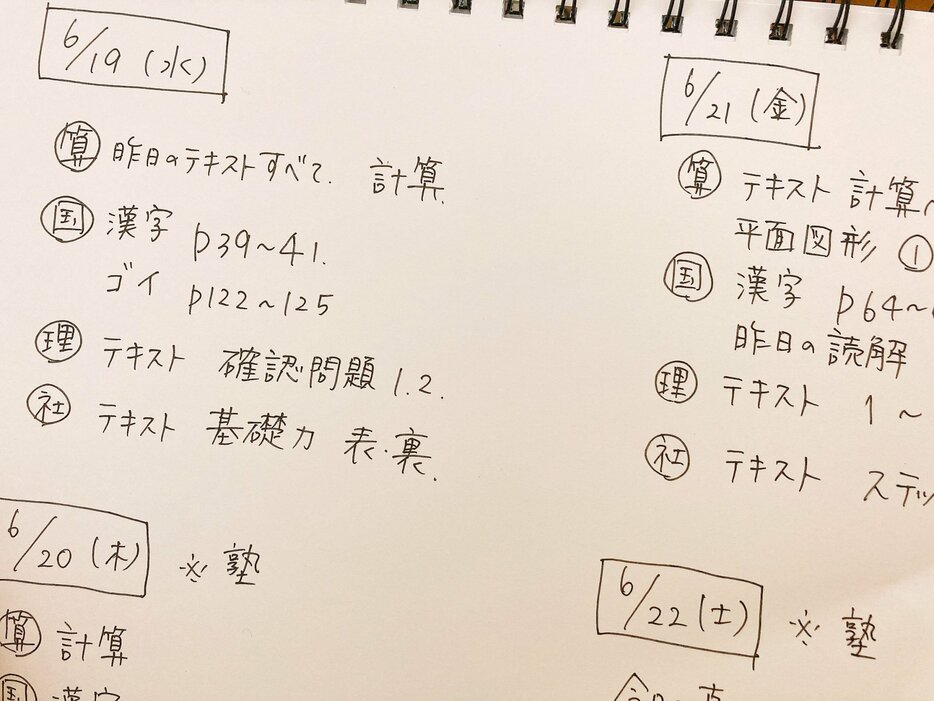 6/19 (水)
算 昨日のテキストすべて. 計算.
国 漢字 p39~41.
ゴイ p122~125
理 テキスト 確認問題 1.2.
社 テキスト 基礎力 表・裏.
6/20 (木) ※塾
算 計算
国 漢字
6/21 (金)
算 テキスト 計算
平面図形 ①
国 漢字 p64~
昨日の読解
理 テキスト 1~
社 テキスト ステッ
6/22 (土) ※塾